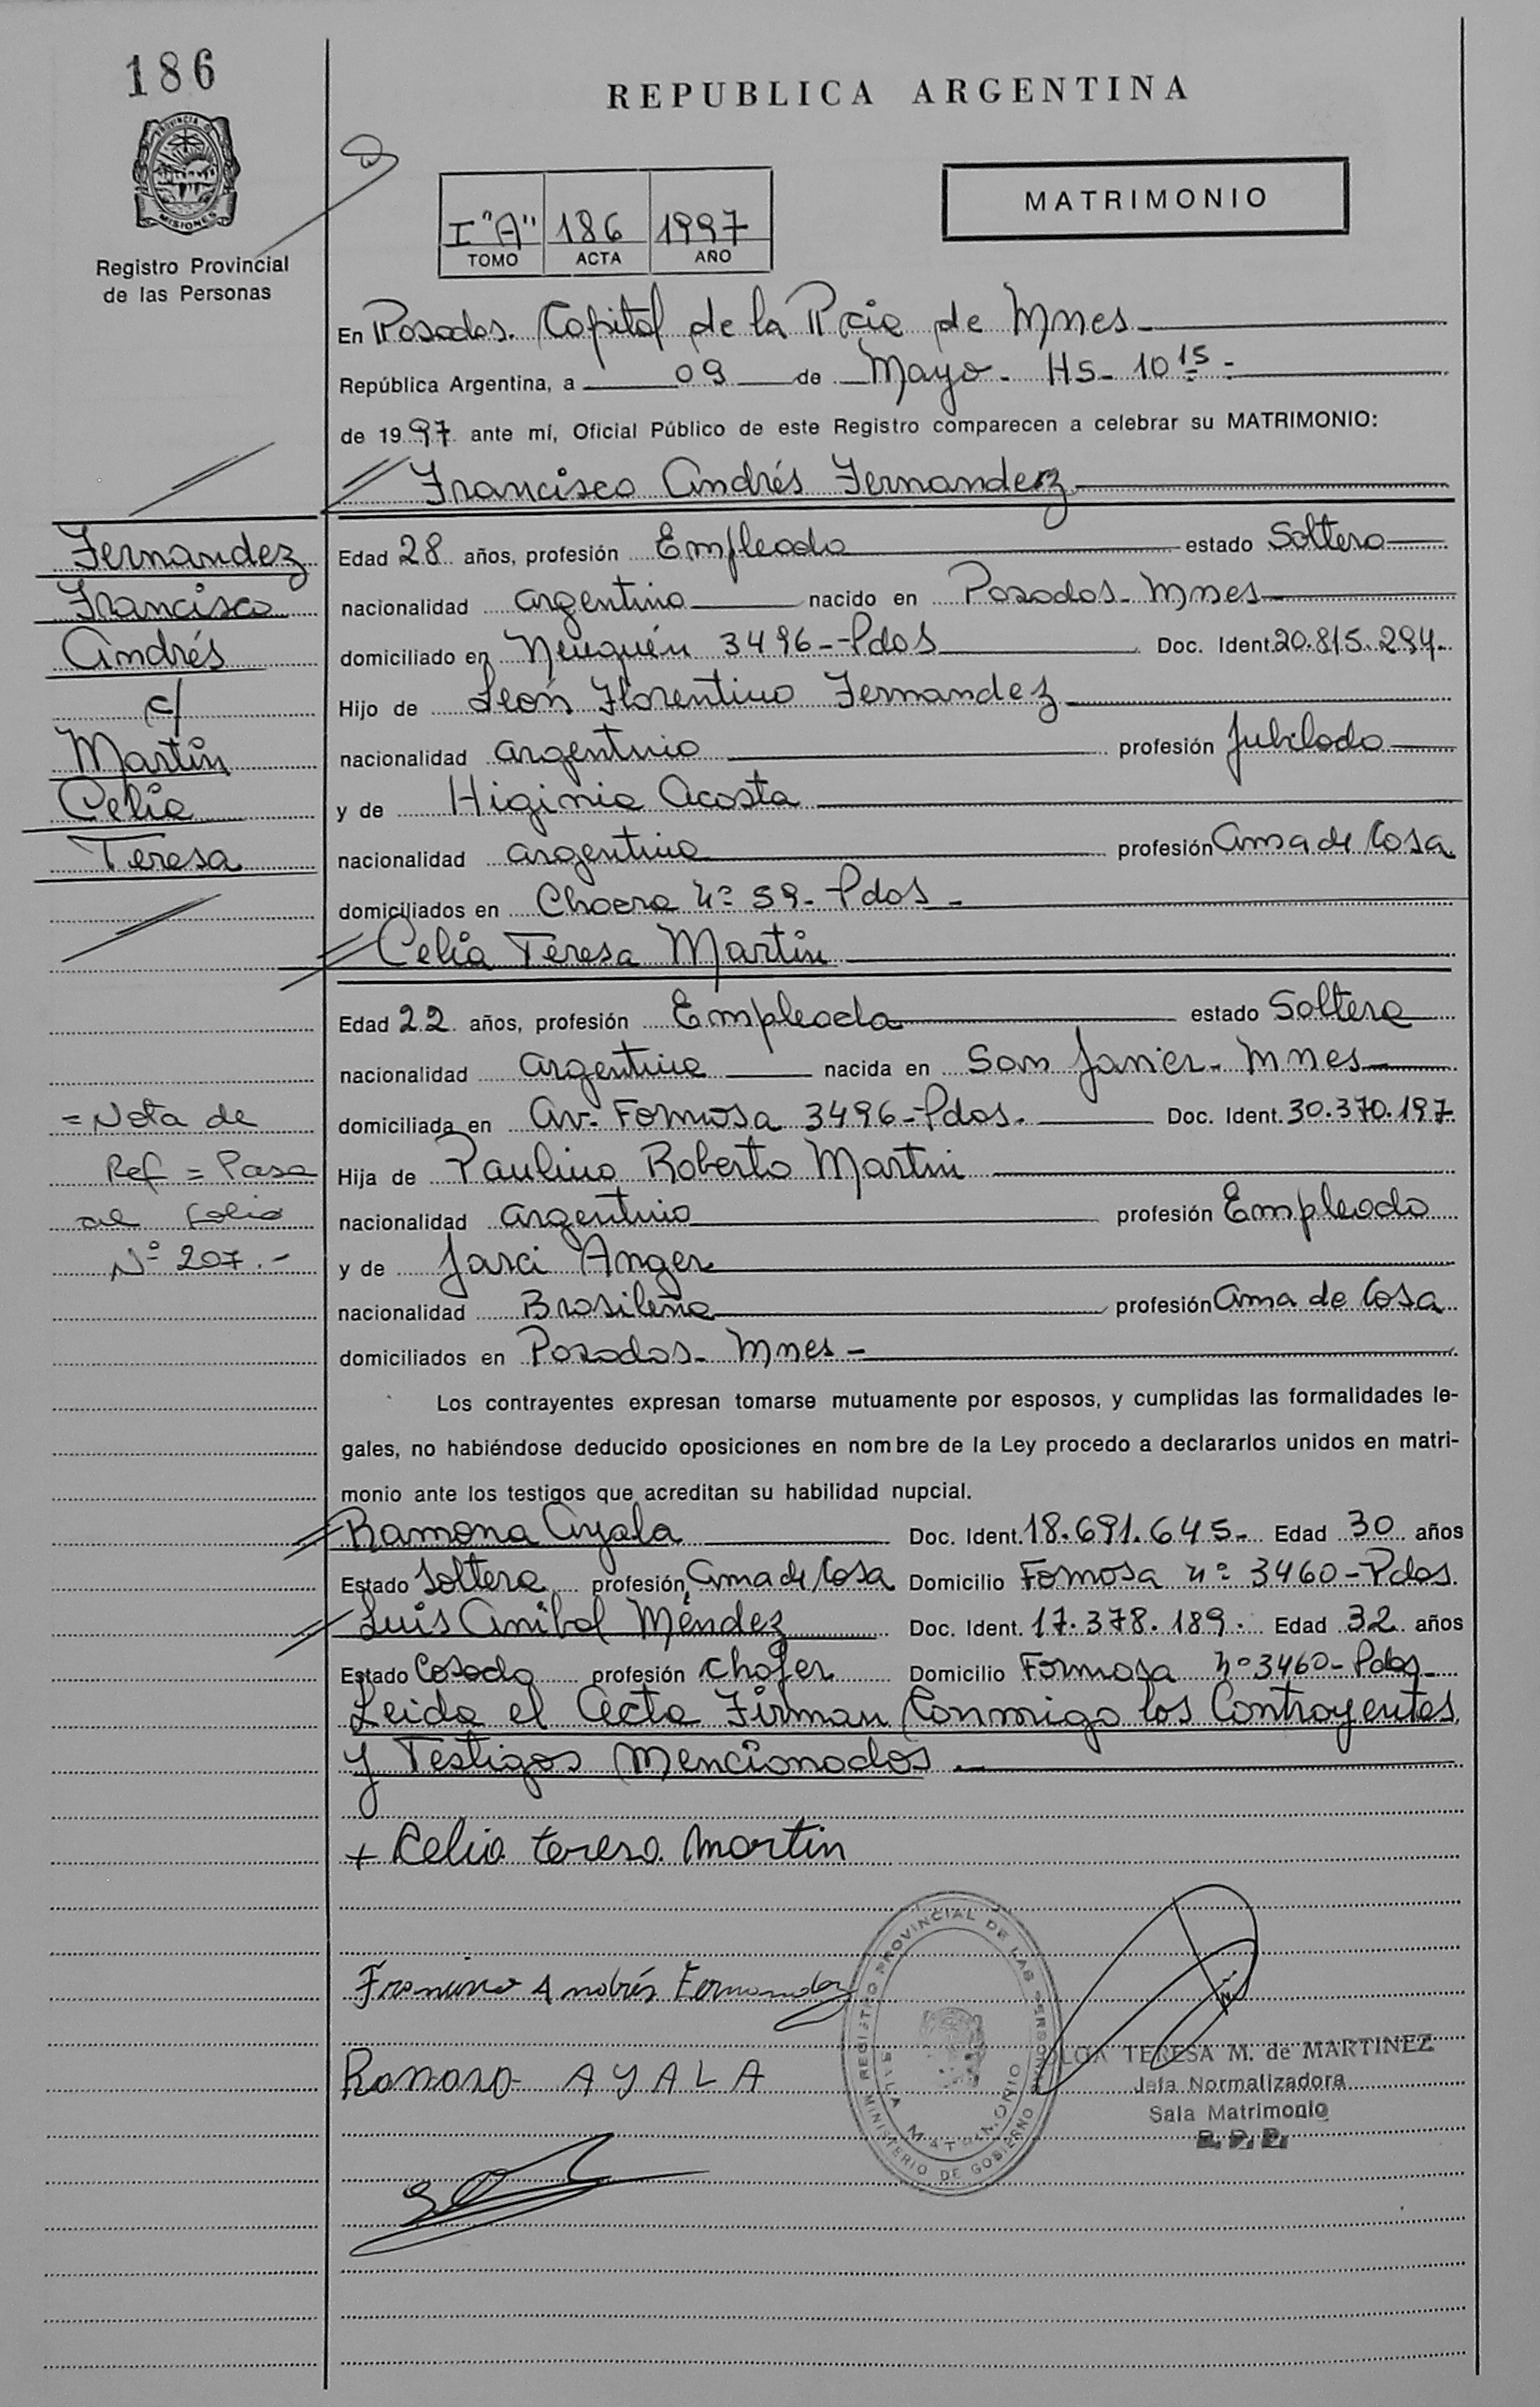 186
REPUBLICA ARGENTINA
PROVINCIA DE
MISIONES
Registro Provincial
de las Personas
I "A" 186 1997
TOMO ACTA AÑO
MATRIMONIO
En Posadas. Capital de la Pcia de Mnes
República Argentina, a 09 de Mayo - HS - 10 15 -
de 1997 ante mí, Oficial Público de este Registro comparecen a celebrar su MATRIMONIO:
Francisco Andrés Fernandez
Fernandez
Francisco
Andrés
c/
Martin
Celia
Teresa
Edad 28 años, profesión Empleado estado Soltero
nacionalidad argentino nacido en Posadas - Mnes
domiciliado en Neuquén 3496 - Pdas Doc. Ident. 20.815.294.
Hijo de León Florentino Fernandez
nacionalidad argentino profesión Jubilado
y de Higinia Acosta
nacionalidad argentina profesión ama de Casa
domiciliados en Chacra Nº 59 - Pdas -
Celia Teresa Martin
Edad 22 años, profesión Empleada estado Soltera
nacionalidad argentina nacida en San Javier - Mnes
domiciliada en Av. Formosa 3496 - Pdas. Doc. Ident. 30.370.197
Hija de Paulino Roberto Martin
nacionalidad argentino profesión Empleado
y de Jarci Anger
nacionalidad Brasileña profesión ama de Casa
domiciliados en Posadas - Mnes -
= Nota de
Ref = Pasa
al folio
Nº 207.-
Los contrayentes expresan tomarse mutuamente por esposos, y cumplidas las formalidades le-
gales, no habiéndose deducido oposiciones en nombre de la Ley procedo a declararlos unidos en matri-
monio ante los testigos que acreditan su habilidad nupcial.
Ramona Ayala Doc. Ident. 18.691.645 - Edad 30 años
Estado Soltera profesión ama de Casa Domicilio Formosa nº 3460 - Pdas.
Luis Anibal Méndez Doc. Ident. 17.378.189. Edad 32 años
Estado Casado profesión chofer Domicilio Formosa nº 3460 - Pdas -
Leida el Acta Firman Conmigo los Contrayentes
y Testigos Mencionados. -
+ Celia teresa martin
Francisco Andrés Fernandez
Ramona AYALA
REGISTRO PROVINCIAL DE LAS PERSONAS
SALA MATRIMONIO
MINISTERIO DE GOBIERNO
TERESA M. de MARTINEZ
Jefa Normalizadora
Sala Matrimonio
R. P. P.